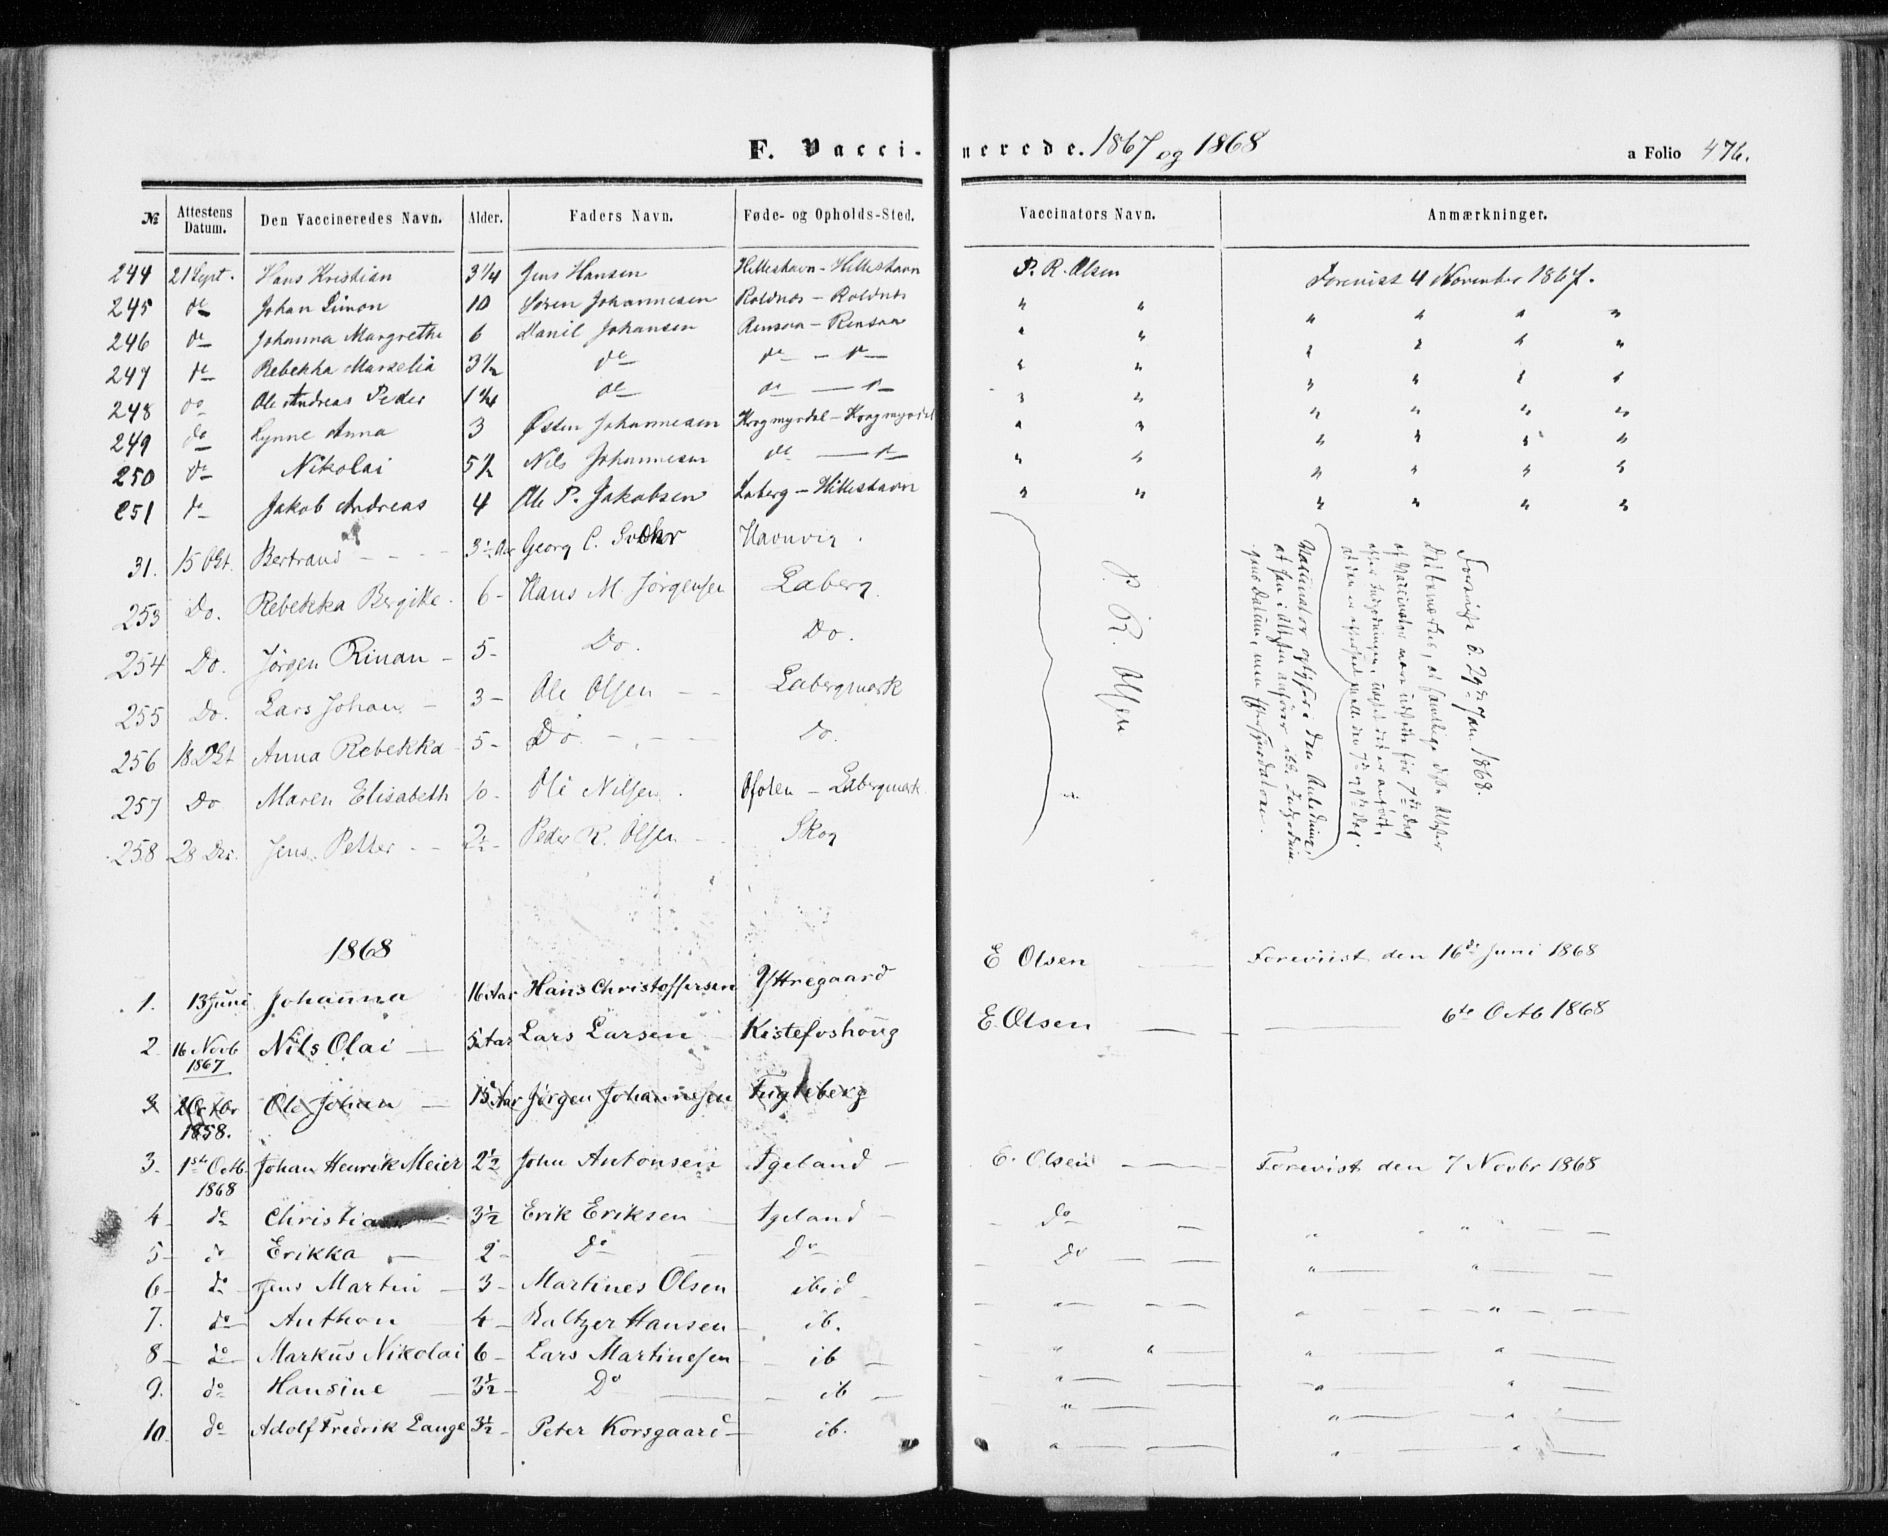 F. Vaccinerede. 1867 og 1868 a Folio 476.
№ Attestens Datum. Den Vaccineredes Navn. Alder. Faders Navn. Føde- og Opholds-Sted. Vaccinators Navn. Anmærkninger.
244 21 Sept. Hans Kristian 3 1/4 Jens Hansen Hilleshavn - Hilleshavn P. R. Olsen Forevist 4 November 1867.
245 do Johan Simon 10 Søren Johannesen Roldnes - Roldnes " " " " " "
246 do Johanna Margrethe 6 Danil Johansen Rensaa - Rensaa " " " " " "
247 do Rebekka Marselia 3 1/2 do do - do " " " " " "
248 do Ole Andreas Peder 1 1/4 do do - do " " " " " "
249 do Lynne Anna 3 Østen Johannesen Krogmyrdal - Krogmyrdal " " " " " "
250 do Nikolai 5 1/2 Nils Johannesen do - do " " " " " "
251 do Jakob Andreas 4 Ole P. Jakobsen Laberg - Hilleshavn " " " " " "
31. 15 Okt. Bertrand - - - 3 1/2 Aar Georg C. Havnvig.
253 Do. Rebekka Bergitte. 6 - Hans M Jørgensen Laberg.
254 Do. Jørgen Rinan - 5 - Do. Do.
255 Do. Lars Johan - 3 - Ole Olsen - - Labergmark
256 18 Okt Anna Rebekka 5 - Do - - - Do.
257 Do Maren Elisabeth 10 - Ole Nilsen. Ofoten - Labergmark.
258 28 Dec. Jens Petter - - 2 1/2 - Peder R. Olsen - Skog
P. R. Olsen
Forevist d. 29de Jan. 1868.
1868
1. 13 Juni Johanna 16 Aar Hans Christoffersen Yttregaard E Olsen Foreviist den 16de Juni 1868
2. 16 Novb 1867 Nils Olai - 5 Aar Lars Larsen - Kistefoshoug E. Olsen - - 6te Octb 1868
3 Octbr 1858. Ole Johan - 15 Aar Jørgen Johannesen Fugleberg
3. 1ste Octb. 1868 Johan Henrik Meier 2 1/2 John Antonsen Igeland - E. Olsen - Forevist den 7 Novbr 1868
4 - do Christian - 3 1/2 Erik Eriksen - Igeland - - Do - " " " - -
5 - do Erikka - 2 - Do - Do - Do - - " - " - -
6 - do Jens Martin - 3 - Martines Olsen ibid - - " - - " - " - -
7. do Anthon - 4 - Baltzer Hansen - ib. " " " "
8 - do Markus Nikolai 6 - Lars Martinesen - ib - - " - - - " - "
9. do Hansine - 3 1/2 - Do - - ib - - " - - " - "
10. do Adolf Fredrik Lange 3 1/2 - Peter Korsgaard - ib. " - - - " - "